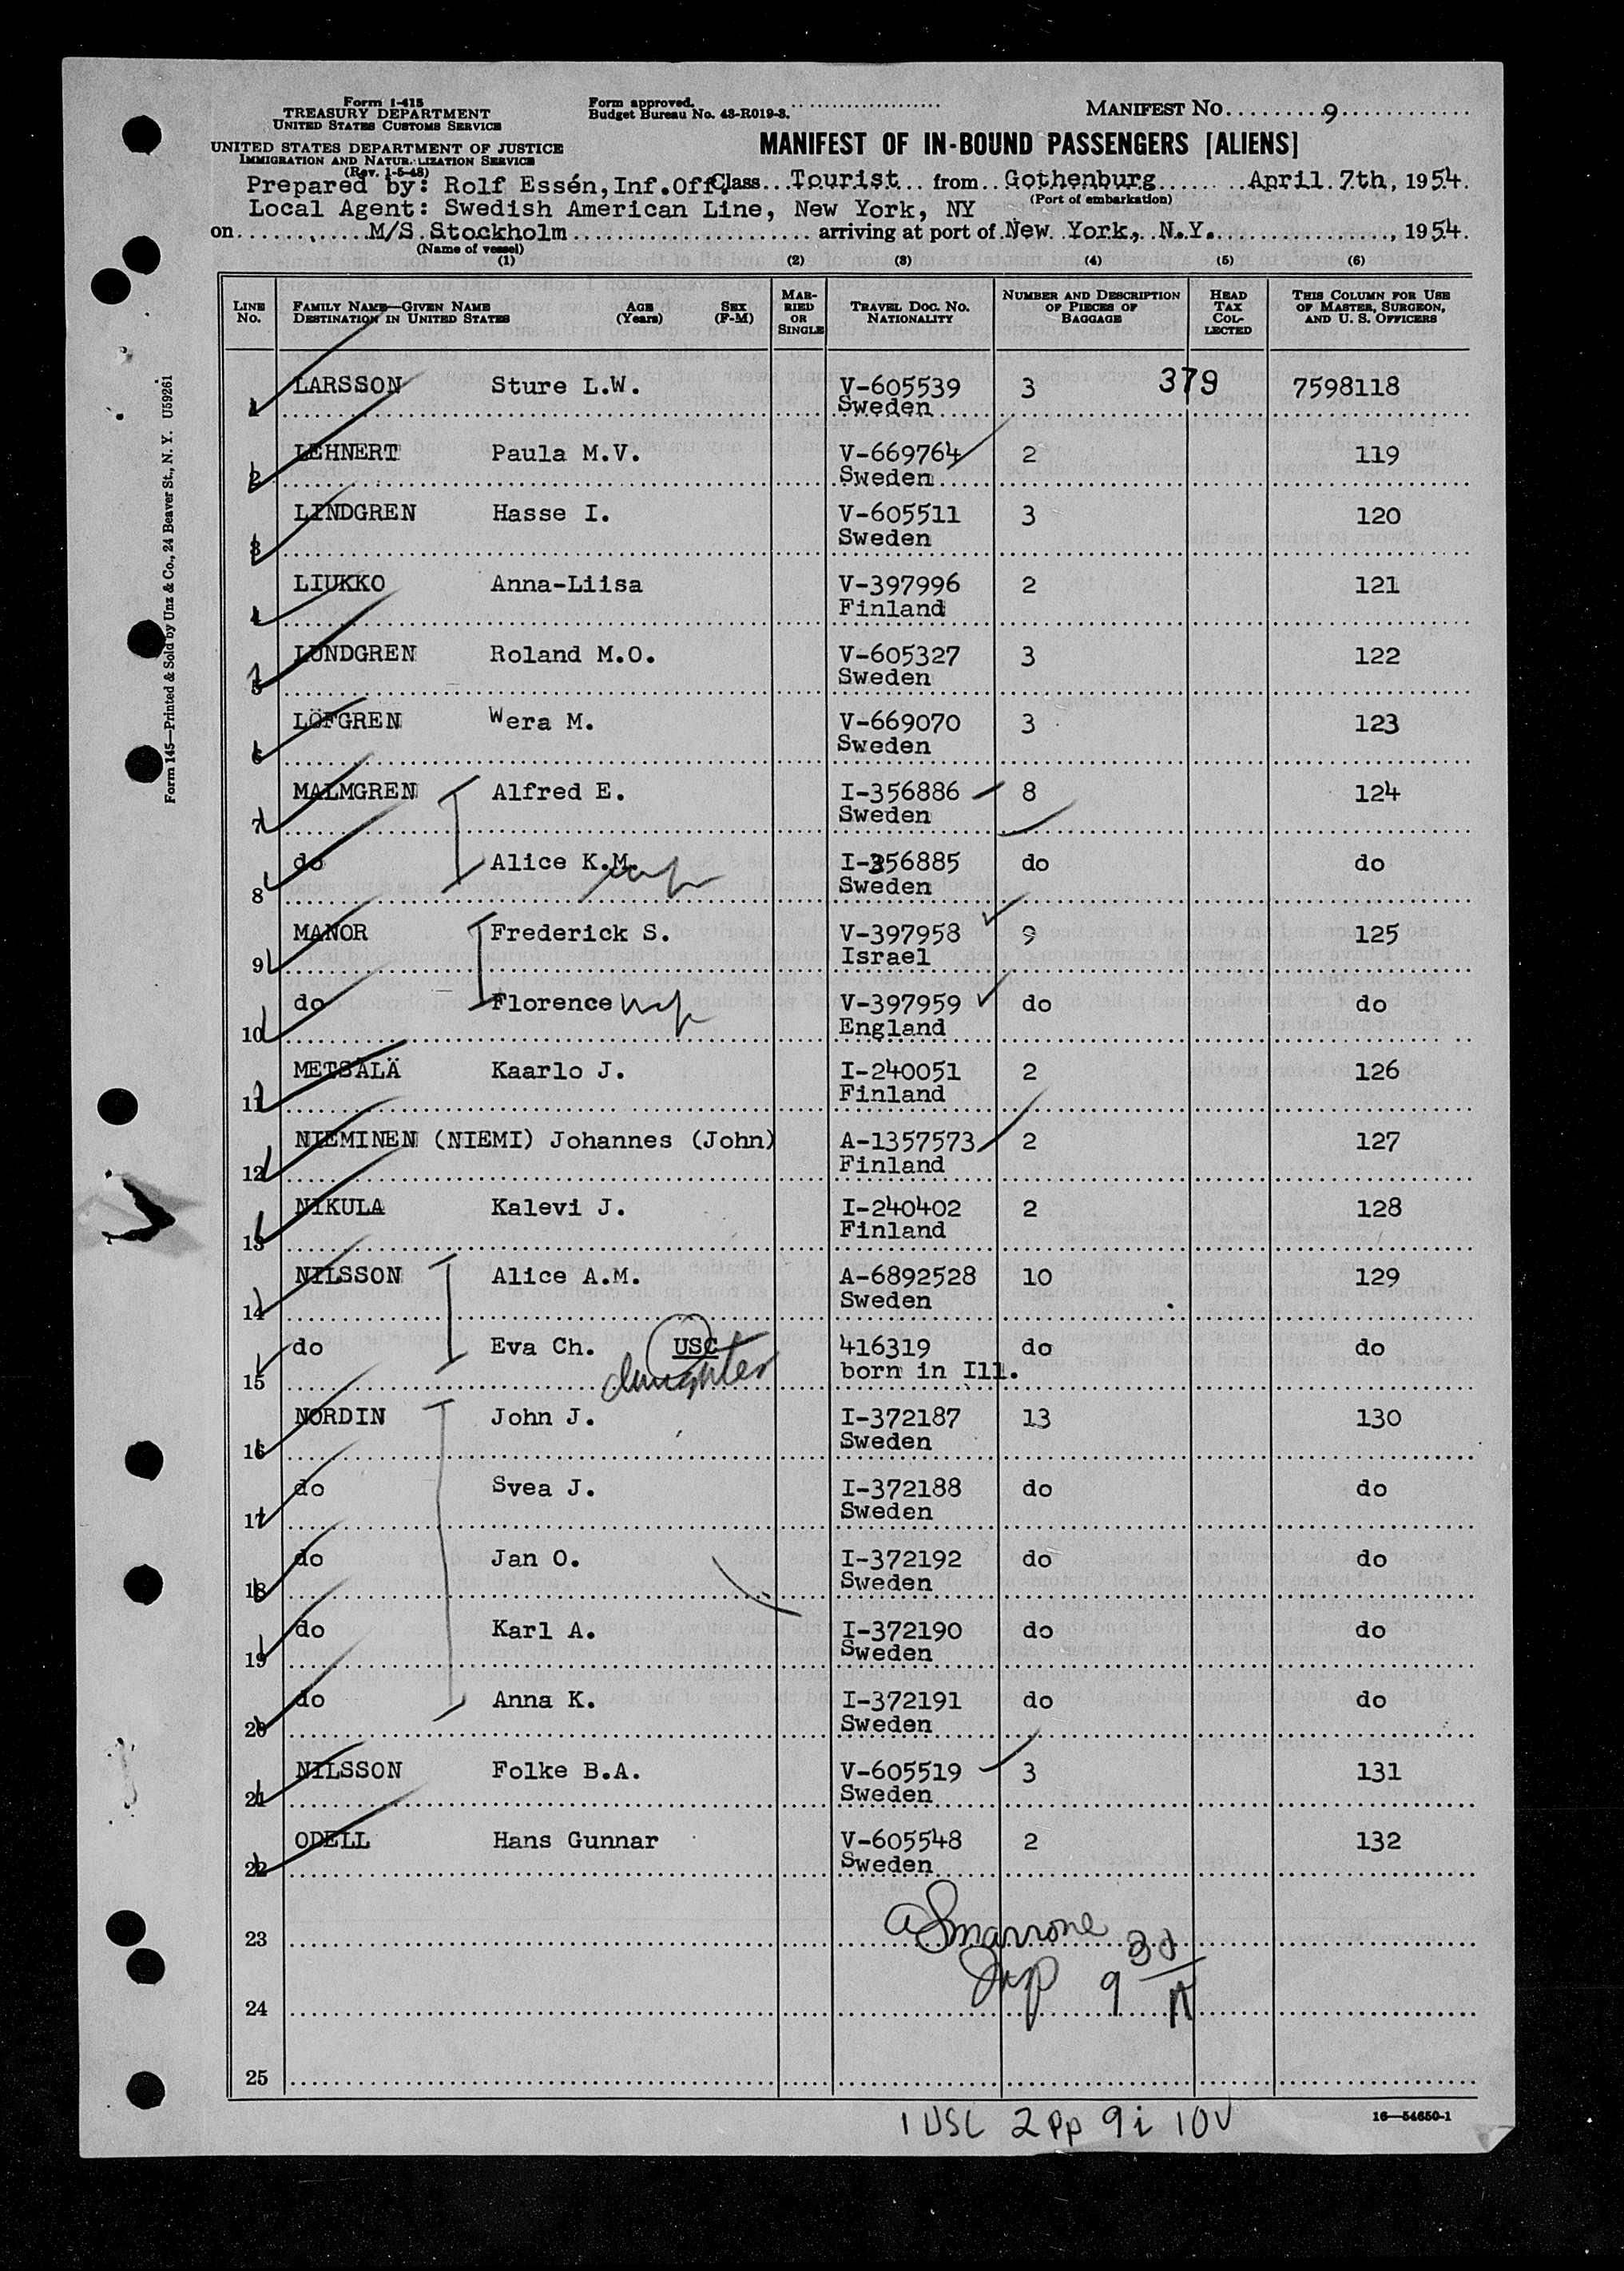 Form I-415
TREASURY DEPARTMENT
UNITED STATES CUSTOMS SERVICE
UNITED STATES DEPARTMENT OF JUSTICE
IMMIGRATION AND NATURALIZATION SERVICE
(Rev. 1-5-48)
Form approved.
Budget Bureau No. 43-R019-3.
MANIFEST NO. 9
MANIFEST OF IN-BOUND PASSENGERS [ALIENS]
Prepared by: Rolf Essén, Inf.Off. Class Tourist from Gothenburg April 7th, 1954.
(Port of embarkation)
Local Agent: Swedish American Line, New York, NY
on M/S Stockholm arriving at port of New York, N.Y., 1954.
(Name of vessel)
(1) (2) (3) (4) (5) (6)
LINE NO. FAMILY NAME—GIVEN NAME DESTINATION IN UNITED STATES AGE (Years) SEX (F-M) MARRIED OR SINGLE TRAVEL DOC. NO. NATIONALITY NUMBER AND DESCRIPTION OF PIECES OF BAGGAGE HEAD TAX COLLECTED THIS COLUMN FOR USE OF MASTER, SURGEON, AND U. S. OFFICERS
1 LARSSON Sture L.W. V-605539 3 379 7598118
Sweden
2 LEHNERT Paula M.V. V-669764 2 119
Sweden
3 LINDGREN Hasse I. V-605511 3 120
Sweden
4 LIUKKO Anna-Liisa V-397996 2 121
Finland
5 LUNDGREN Roland M.O. V-605327 3 122
Sweden
6 LÖFGREN Wera M. V-669070 3 123
Sweden
7 MALMGREN Alfred E. I-356886 8 124
Sweden
8 do Alice K.M. I-356885 do do
Sweden
9 MANOR Frederick S. V-397958 9 125
Israel
10 do Florence V-397959 do do
England
11 METSÄLÄ Kaarlo J. I-240051 2 126
Finland
12 NIEMINEN (NIEMI) Johannes (John) A-1357573 2 127
Finland
13 NIKULA Kalevi J. I-240402 2 128
Finland
14 NILSSON Alice A.M. A-6892528 10 129
Sweden
15 do Eva Ch. USC 416319 do do
daughter born in Ill.
16 NORDIN John J. I-372187 13 130
Sweden
17 do Svea J. I-372188 do do
Sweden
18 do Jan O. I-372192 do do
Sweden
19 do Karl A. I-372190 do do
Sweden
20 do Anna K. I-372191 do do
Sweden
21 NILSSON Folke B.A. V-605519 3 131
Sweden
22 ODELL Hans Gunnar V-605548 2 132
Sweden
23
24
25
1 USC 2 PP 9 i 10 V
16—54650-1
Form 145—Printed & Sold by Unz & Co., 24 Beaver St., N. Y. U59261